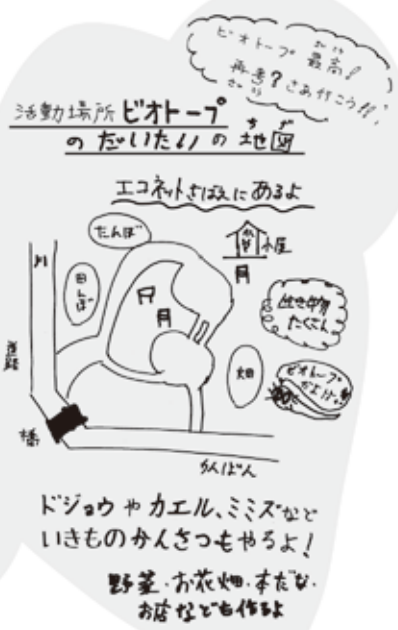 ビオトープ 最高!
再考? さあ行こう!!
さいこう
活動場所 ビオトープ
のだいたいの地図
ちず
エコネットさばえにあるよ
たんぼ
小屋
田んぼ
川
生き物
たくさん
道路
畑
ビオトープ
橋
かんばん
ドジョウやカエル、ミミズなど
いきものかんさつもやるよ!
野菜・お花畑・本だな・
お店なども作るよ